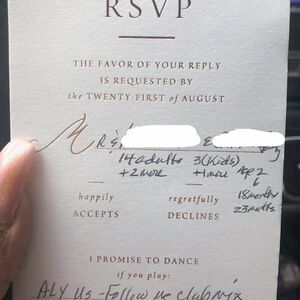 RSVP
THE FAVOR OF YOUR REPLY
IS REQUESTED BY
the TWENTY-FIRST of AUGUST
MR &
14 adults 3 (Kids)
+2 more +1 more Age 2
18 months
23 months
happily regretfully
ACCEPTS DECLINES
I PROMISE TO DANCE
if you play:
ALY US - Follow me club mix